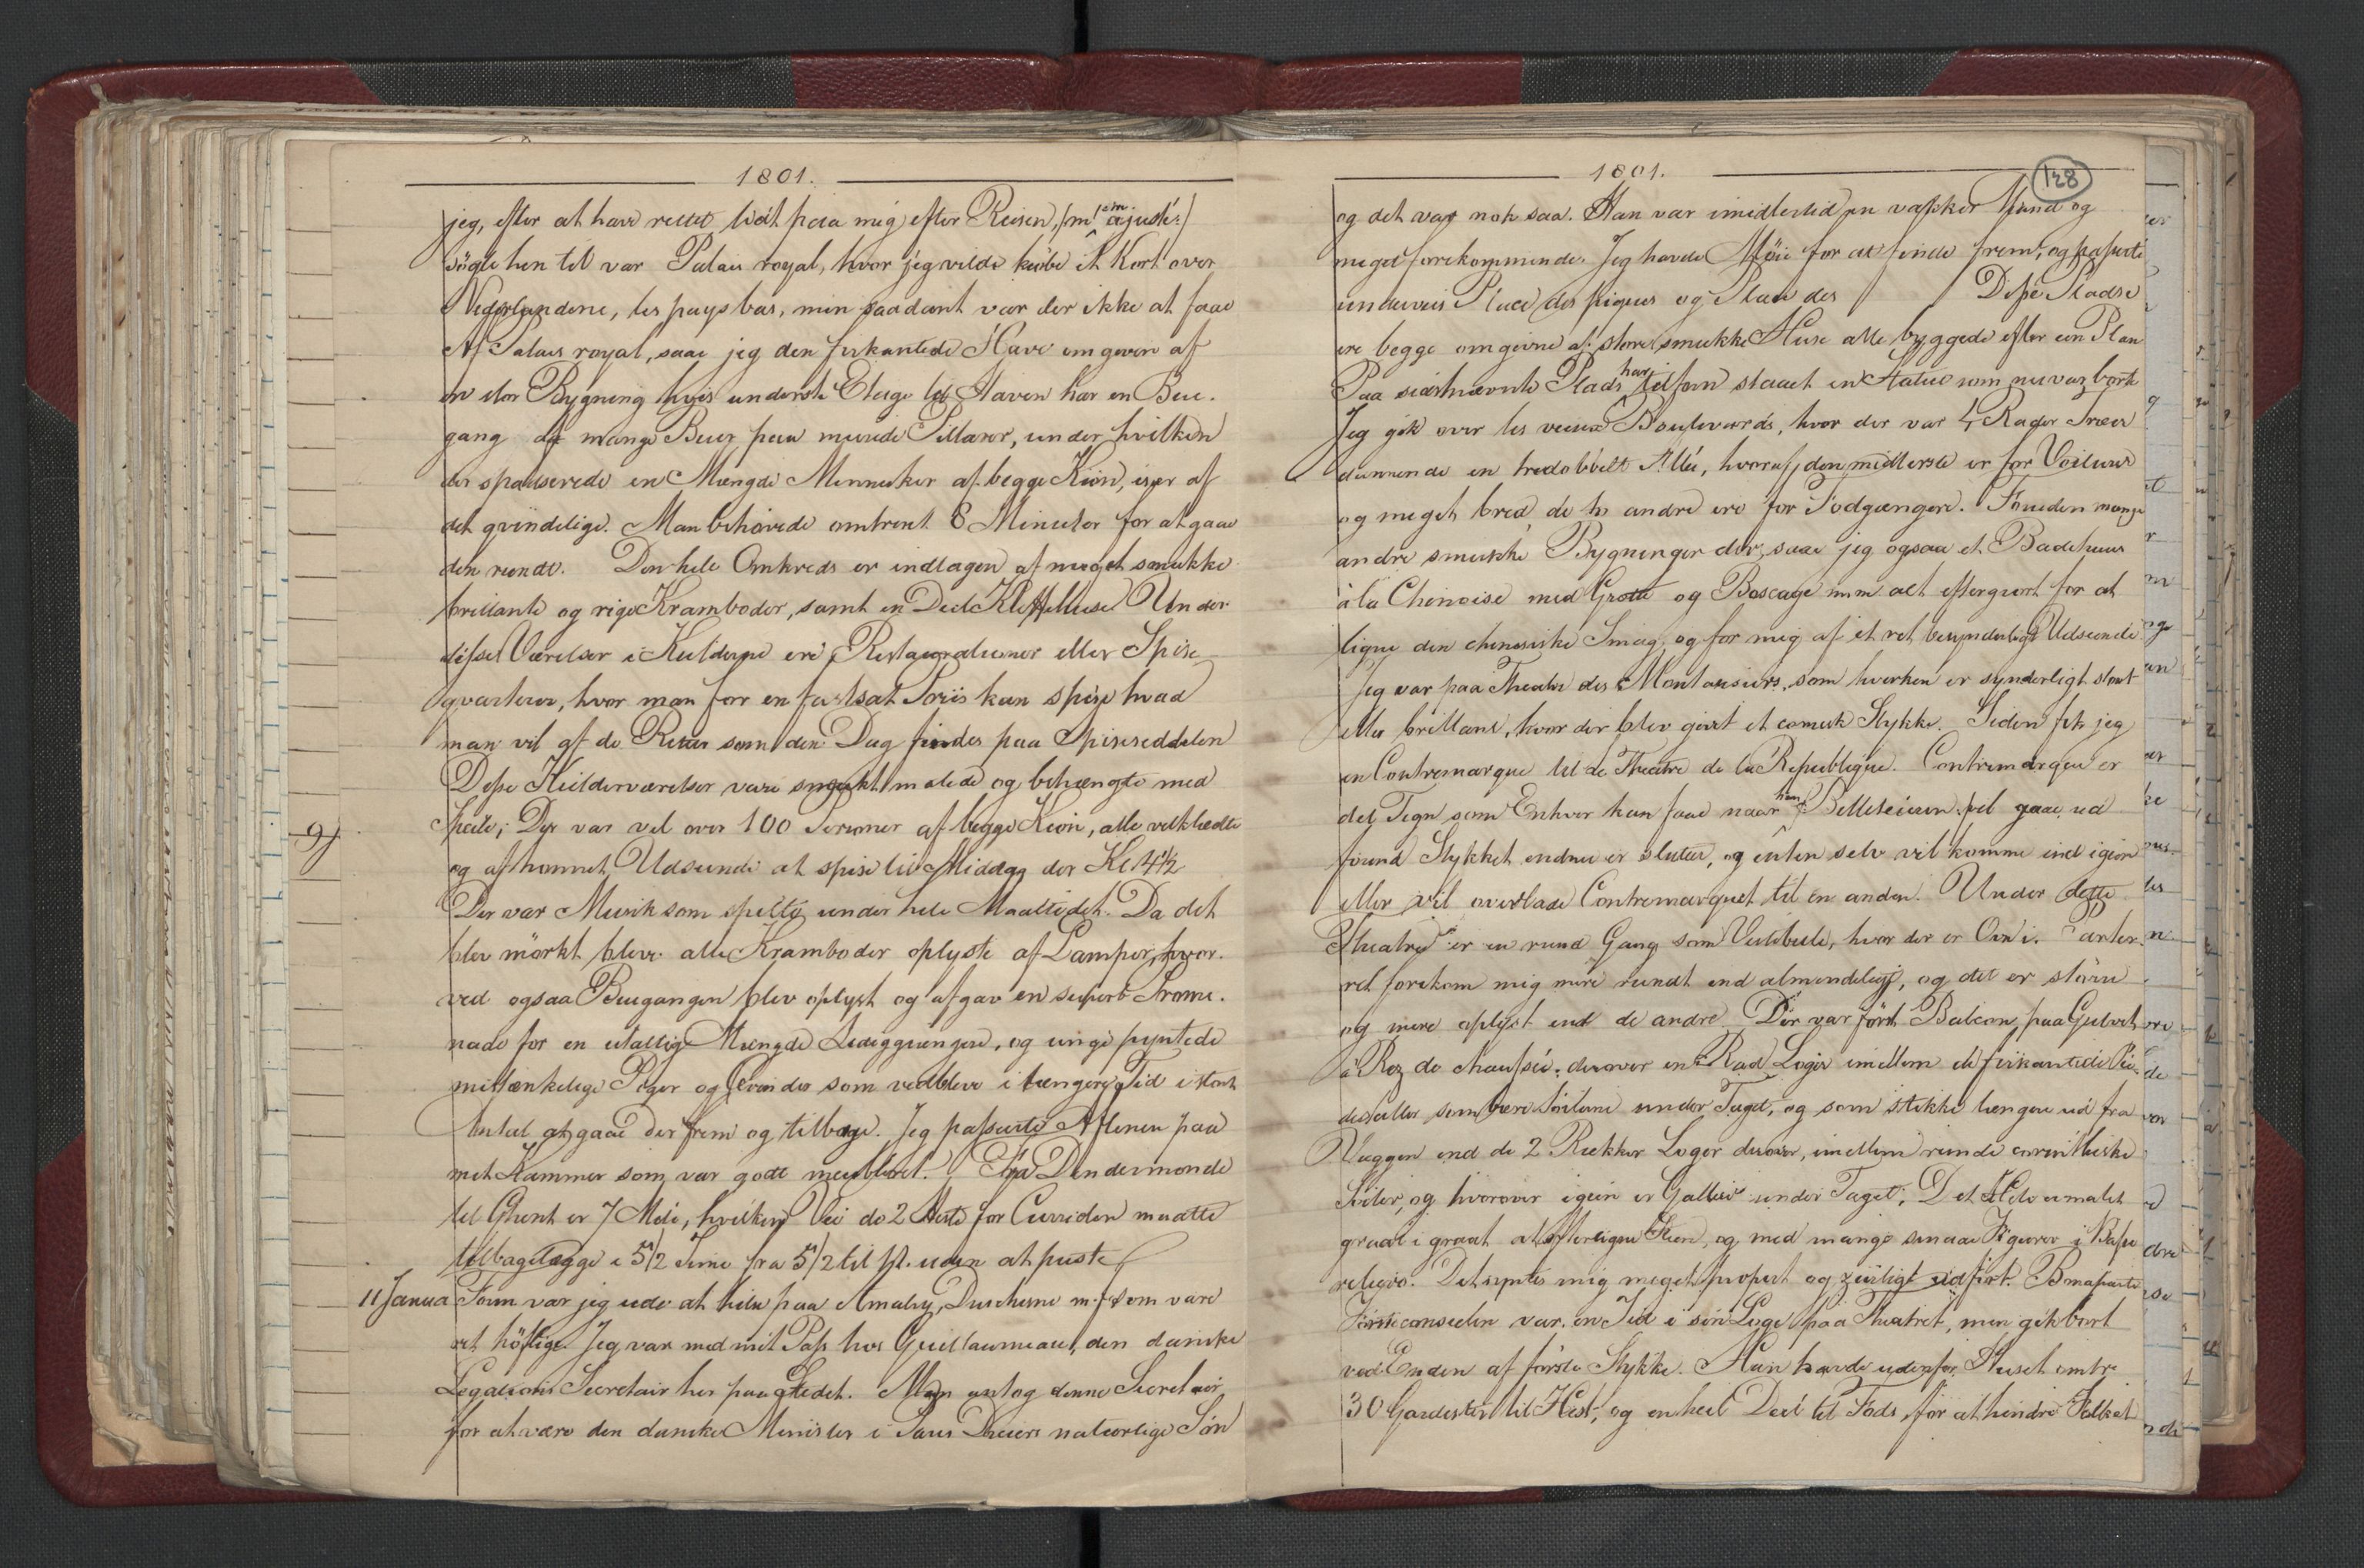 1801.
jeg, efter at have rettet lidt paa mig efter Reisen, /: m'em ajusté :/
sögte hen til var Palais royal, hvor jeg vilde kiöbe et Kort over
Nederlandene, les pays bas, men saadant var der ikke at faae
Af Palais royal, saae jeg den firkantede Have omgiven af
en stor Bygning hvis underste Etage til Haven har en Bue-
gang af mange Buer paa murede Pillarer, under hvilken
der spadserede en Mængde Mennesker af begge Kiön, især af
det qvindelige. Man behövede omtrent 8 Minuter for at gaae
den rundt. Den hele Omkreds er indtagen af meget smukke
brillante og rige Kramboder, samt en Deel Kaffehuse Under
disse Værelser i Kielderne ere Restaurationer eller Spise
qvarterer, hvor man for en fastsat Priis kan spise hvad
man vil af de Retter som den Dag findes paa Spiseseddelen
Disse Kielderværelser vare smukt malede og behængte med
Speile; Der var vel over 100 Personer af begge Kiön, alle velklædte
9/
og af honnet Udseende at spise til Middag der Kl 4 1/2
Der var Musik som spilte under hele Maaltidet. Da det
blev mörkt bleve alle Kramboder oplyste af Lamper, hvor-
ved ogsaa Buegangen blev oplyst og afgav en superb Prome-
nade for en utallig Mængde Lediggiængere, og unge pyntede
mistænkelige Piger og Qvinder som vedbleve i længere Tid i stort
Antal at gaae der frem og tilbage. Jeg passerte Aftenen paa
mit Kammer som var godt meubleret. Fra Dendermonde
til Ghent er 7 Mile, hvilken Vei de 2 Heste for Curriden maatte
tilbagelægge i 5 1/2 Time fra 5 1/2 til 11. uden at puste
11 Janua Form var jeg ude at hilse paa Amalry, Duschesne m. f. som vare
ret höflige. Jeg var med mit Pass hos Guillaumeau, den danske
Legations Secretair her paa Stedet. Man antog denne Secretair
for at være den danske Minister i Paris Dreiers naturlige Sön
1801.
128
og det var nok saa. Han var imidlertid en vakker Mand og
meget forekommende. Jeg havde Möie for at finde frem, og passerte
underveis Place des piques og Place des / / Disse Pladse
ere begge omgivne af store smukke Huse alle byggede efter een Plan
Paa sidstnævnte Plads har tilforn staaet en Statue som nu var borte
Jeg gik over les vieux Boulevards, hvor der var 4 Rader Træer
dannende en tredobbelt Allée, hvoraf den midterste er for Voiturer
og meget bred, de to andre ere for Fodgængere. Foruden mange
andre smukke Bygninger der, saae jeg ogsaa et Badehuus
à la Chinoise med Grotte og Boscage m. m. alt eftergiort for at
ligne den chinesiske Smag, og for mig af et ret besynderligt Udseende
Jeg var paa Theatre des Montausiers, som hverken er synderligt stort
eller brillant, hvor der blev givet et comisk Stykke. Siden fik jeg
en Contremarque til de Theatre de la Republique. Contremarque er
det Tegn som Enhver kan faae naar han f. Billetteieren vil gaae ud
förend Stykket endnu er sluttet, og enten selv vil komme ind igien
eller vil overlade Contremarquet til en anden. Under dette
Theatre er en rund Gang som Vestibule, hvor der er Ovn i. Parter-
ret forekom mig mere rundt end almindeligt, og det er större
og mere oplyst end de andre Der var först Balcon paa Gulvet
à Rez de chaussée, derover en Rad Loger imellem de firkantede Pie-
destaller som bære Söilerne under Taget, og som stikke længere ud fra
Væggen end de 2 Rækker Loger derover, imellem runde corinthiske
Söiler, og hvorover igien er Gallerie under Taget. Det Hele er malet
graat i graat at efterligne Steen, og med mange smaae Figurer i Basse
relievo. Det syntes mig meget propert og ziirligt udfört. Bonaparte
Förste consulen var en Tid i sin Loge paa Theatret, men gik bort
ved Enden af förste Stykke. Han havde udenfor Huset omtr
30 Gardister til Hest, og en heel Deel til Fods, for at hindre Folket